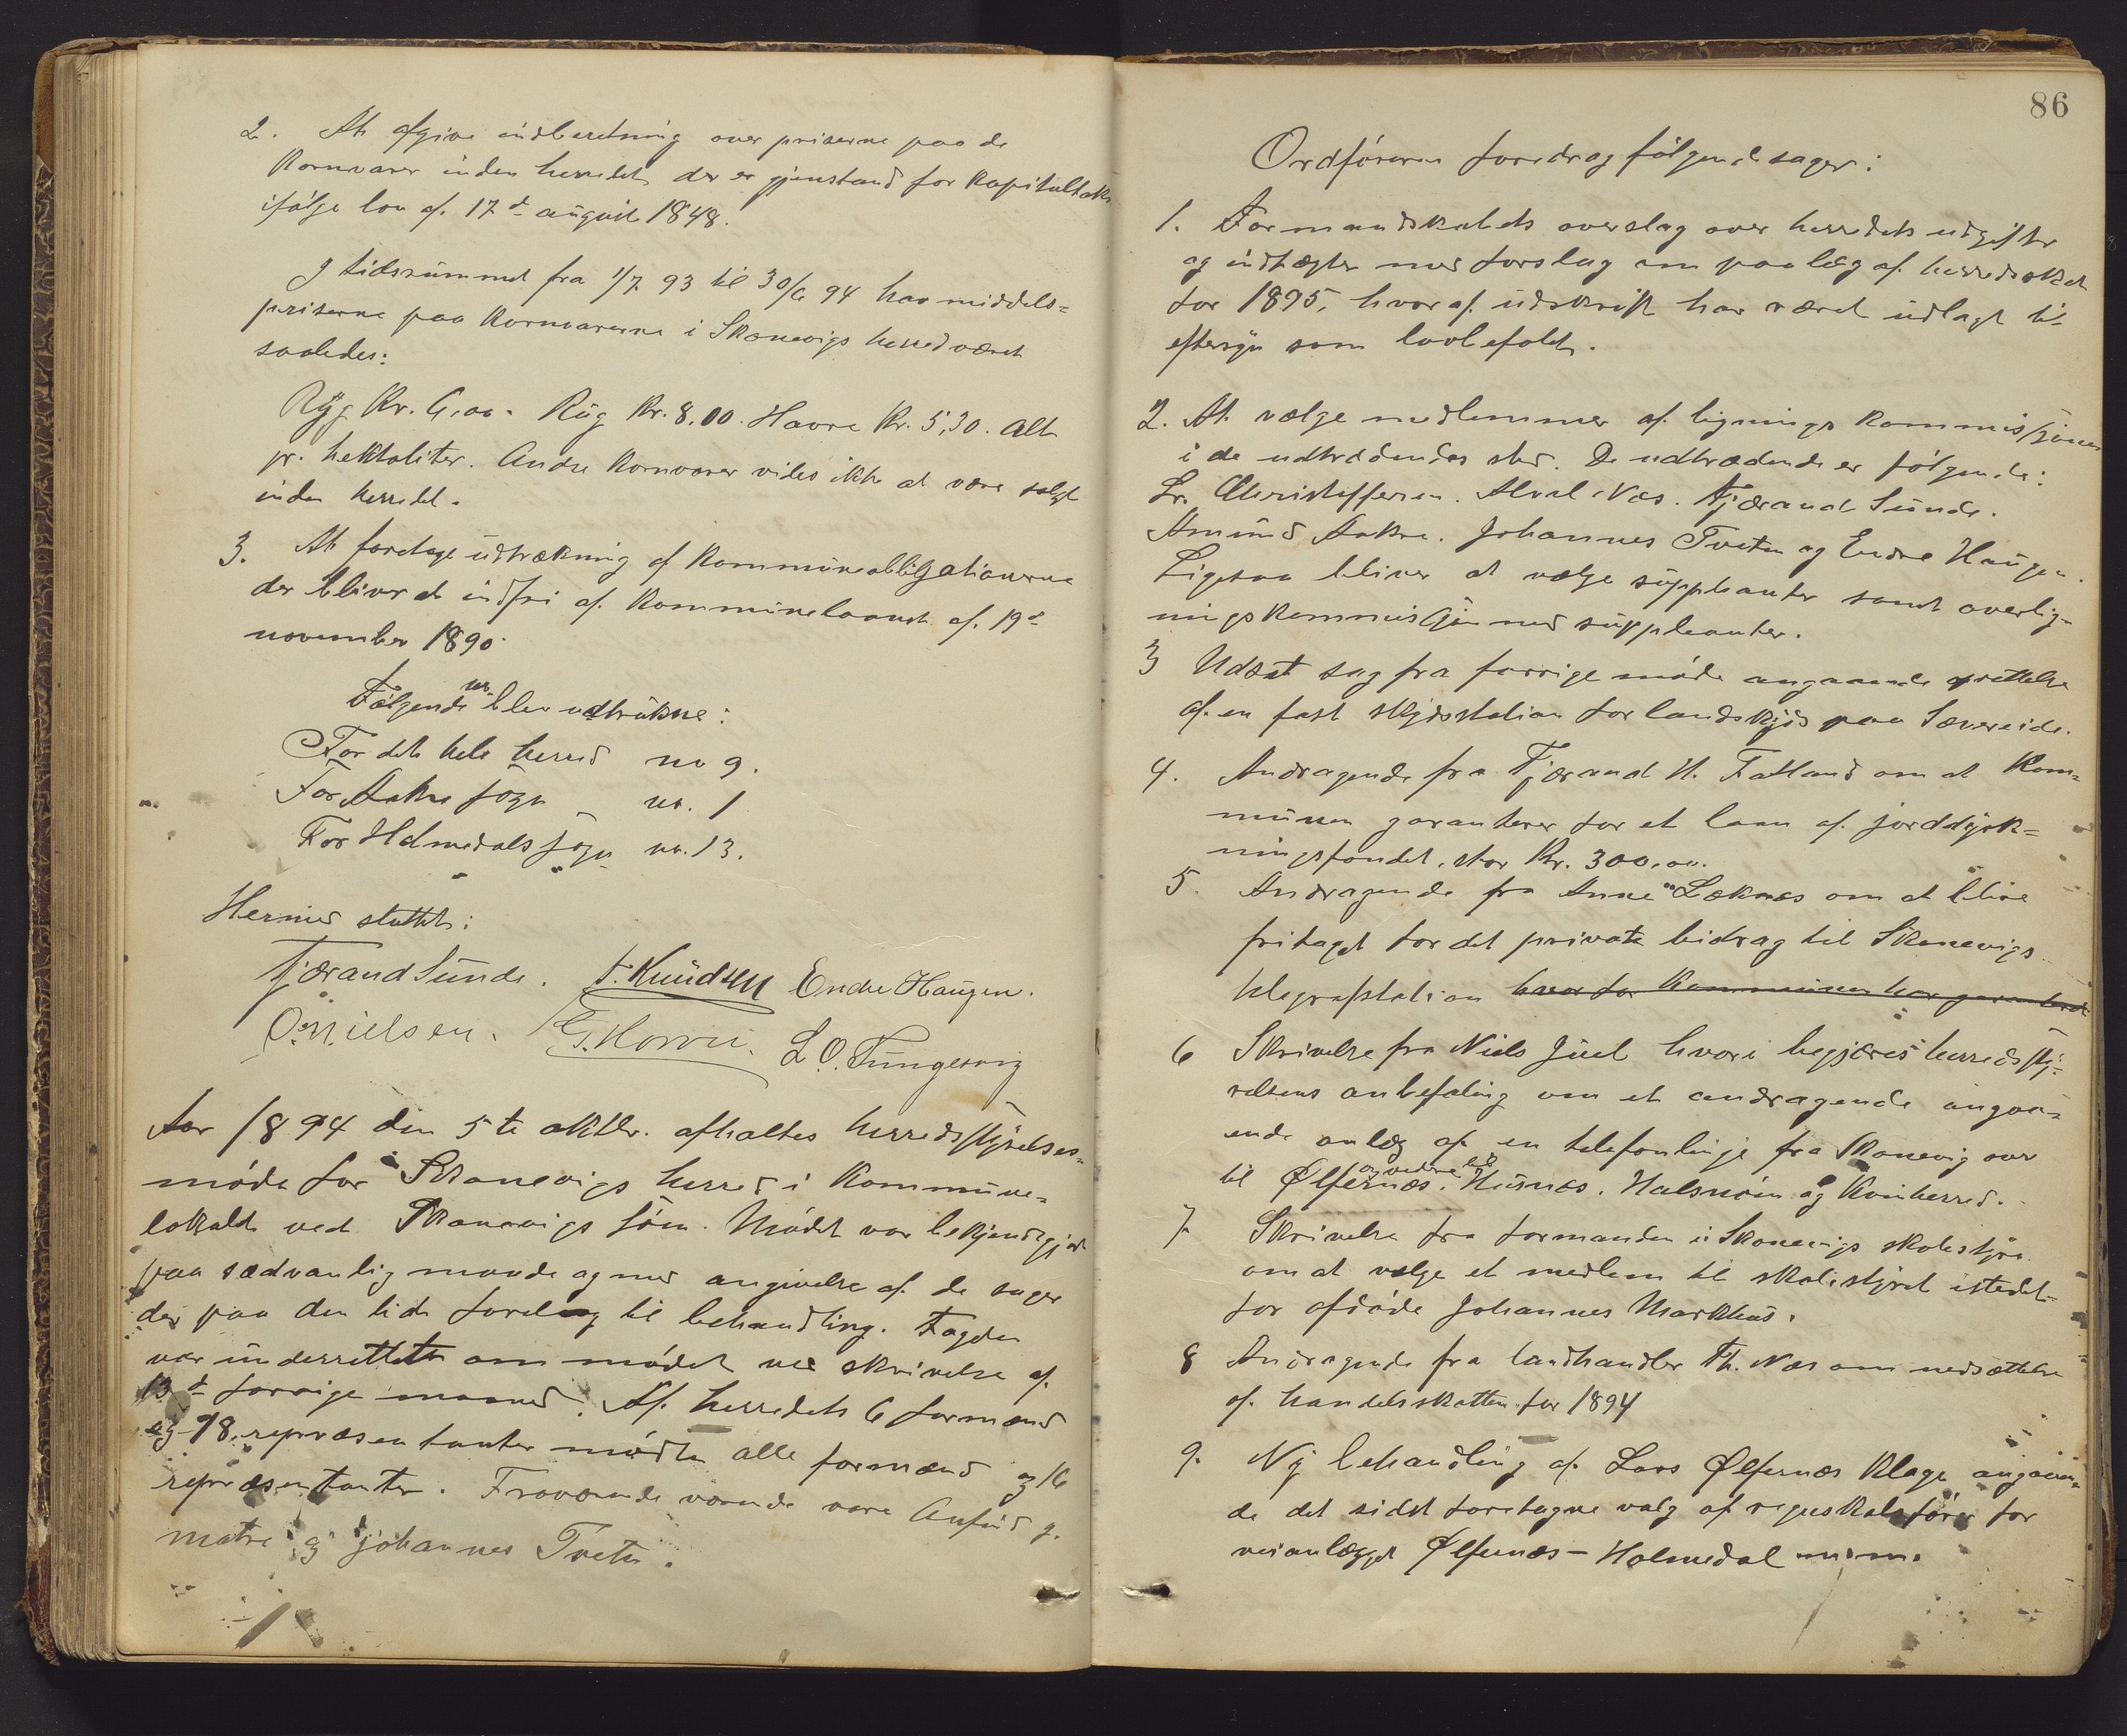 2. At afgive indberetning over priserne paa de
Kornvarer inden herredet der er gjenstand for Kapitultakst
ifølge lov af 17d august 1848.
I tidsrummet fra 1/7 93 til 30/6 94 har middels=
priserne paa Kornvarerne i Skonevigs herred været
saaledes:
Byg Kr. 6,00. Rug Kr. 8,00. Havre Kr. 5,30. Alt
pr. hektoliter. Andre Kornvarer vides ikke at være solgt
inden herredet.
3. At foretage udtrækning af Kommuneobligationerne
der bliver at indfri af Kommunelaanet af 19d
november 1890.
Følgende nr. blev udtrukne:
For det hele herred no 9.
For Aakre sogn - nr. 1
For Holmedals sogn nr. 13.
Hermed sluttet:
Tjærand Sunde. T. Knudsen Endre Haugen.
O. Nielsen. G. Horvei. L. O. Tungesvig
Aar 1894 den 5te oktbr. afholtes herredsstyrelses=
møde for Skonevigs herred i Kommune=
lokalet ved Skonevigs søen. Mødet var bekjendtgjort
paa sædvanlig maade og med angivelse af de sager
der paa den tid forelaag til behandling. Fogden
var underrettet om mødet ved skrivelse af
13d forrige maaned. Af herredets 6 formænd
og 18 repræsentanter mødte alle formænd og 16
repræsentanter. Fraværende vare Anfind J.
Matre og Johannes Tveten.
86
Ordføreren foredrog følgende sager:
1. Formandskabets overslag over herredets udgifter
og indtægter med forslag om paalæg af herredsskat
for 1895, hvoraf udskrift har været udlagt til
eftersyn som lovbefalet.
2. At vælge medlemmer af ligningskommissjonen
i de udtrædendes sted. De udtrædende er følgende:
Lr. Christoffersen. Aksel Næs. Tjærand Sunde.
Amund Aakre. Johannes Tveten og Endre Haugen.
Ligesaa bliver at vælge suppleanter samt overlig-
ningskommissjon med suppleanter.
3 Udsat sag fra forrige møde angaaende oprettelse
af en fast skydsstation for landskyds paa Sævereide.
4. Andragende fra Tjærand H. Fatland om at Kom=
munen garanterer for et laan af jorddyrk=
ningsfondet, stor Kr. 300,00.
5. Andragende fra Anne Læknes om at blive
fritaget for det private bidrag til Skonevigs
telegrafstation hvorfor Kommunen har garanteret
6 Skrivelse fra Niels Juel hvori begjæres herredssty-
relsens anbefaling om et andragende angaa-
ende anlæg af en telefonlinje fra Skonevig over
til Ølfernæs, og videre til Husnes, Halsnøen og Kvinherred.
7 Skrivelse fra formanden i Skonevigs skolestyre
om at vælge et medlem til skolestyret istedet-
for afdøde Johannes Markhus.
8 Andragende fra landhandler Th. Næs om nedsættelse
af handelsskatten for 1894
9. Ny behandling af Lars Ølfernæs klage angaaen-
de det sidst foretagne valg af regnskabsfører for
veianlægget Ølfernæs - Holmedal m.m.